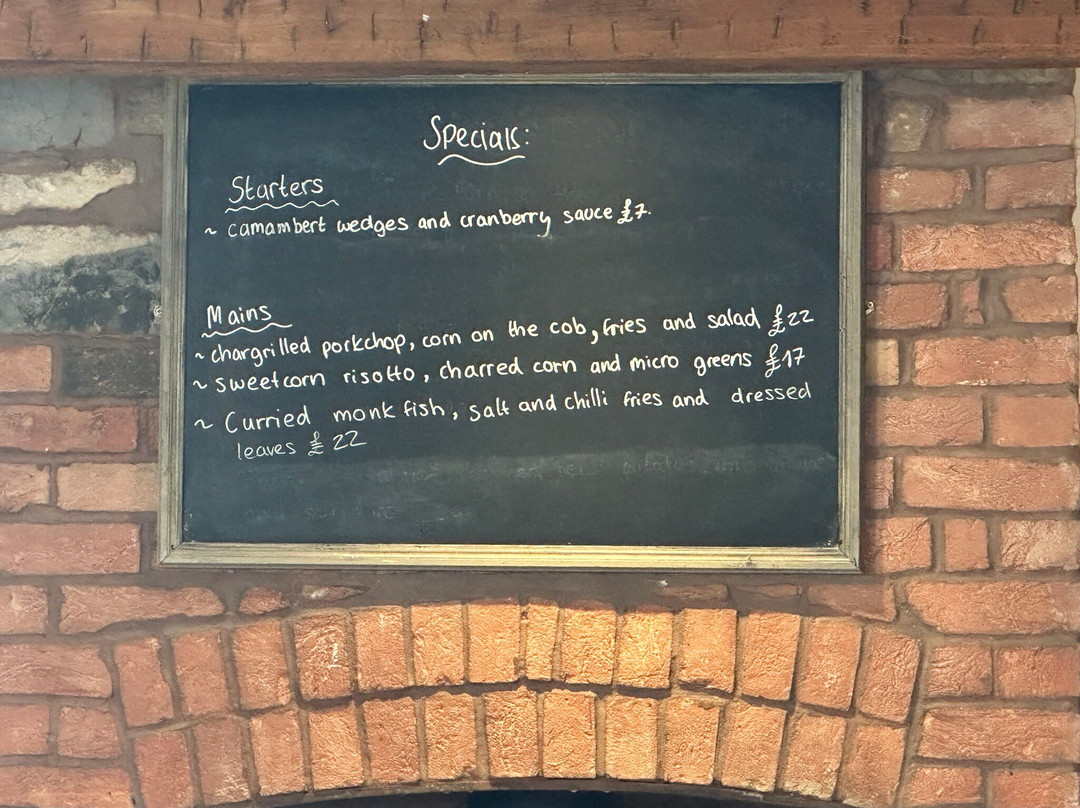 Specials:
Starters
~ camambert wedges and cranberry sauce £7.
Mains
~ chargrilled porkchop, corn on the cob, fries and salad £22
~ sweetcorn risotto, charred corn and micro greens £17
~ Curried monk fish, salt and chilli fries and dressed
leaves £22